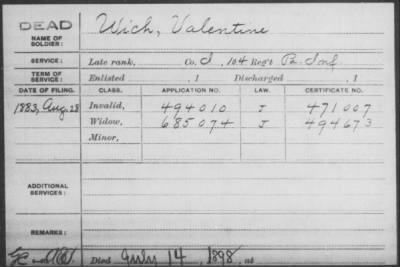 DEAD
NAME OF SOLDIER: Wich, Valentine
SERVICE: Late rank, Co. I, 104 Reg't Pa. Inf.
TERM OF SERVICE: Enlisted , 1 Discharged , 1
DATE OF FILING. CLASS. APPLICATION NO. LAW. CERTIFICATE NO.
1883, Aug. 28 Invalid, 494010 J 471007
Widow, 685074 J 494673
Minor,
ADDITIONAL SERVICES:
REMARKS:
Died July 14, 1898, at